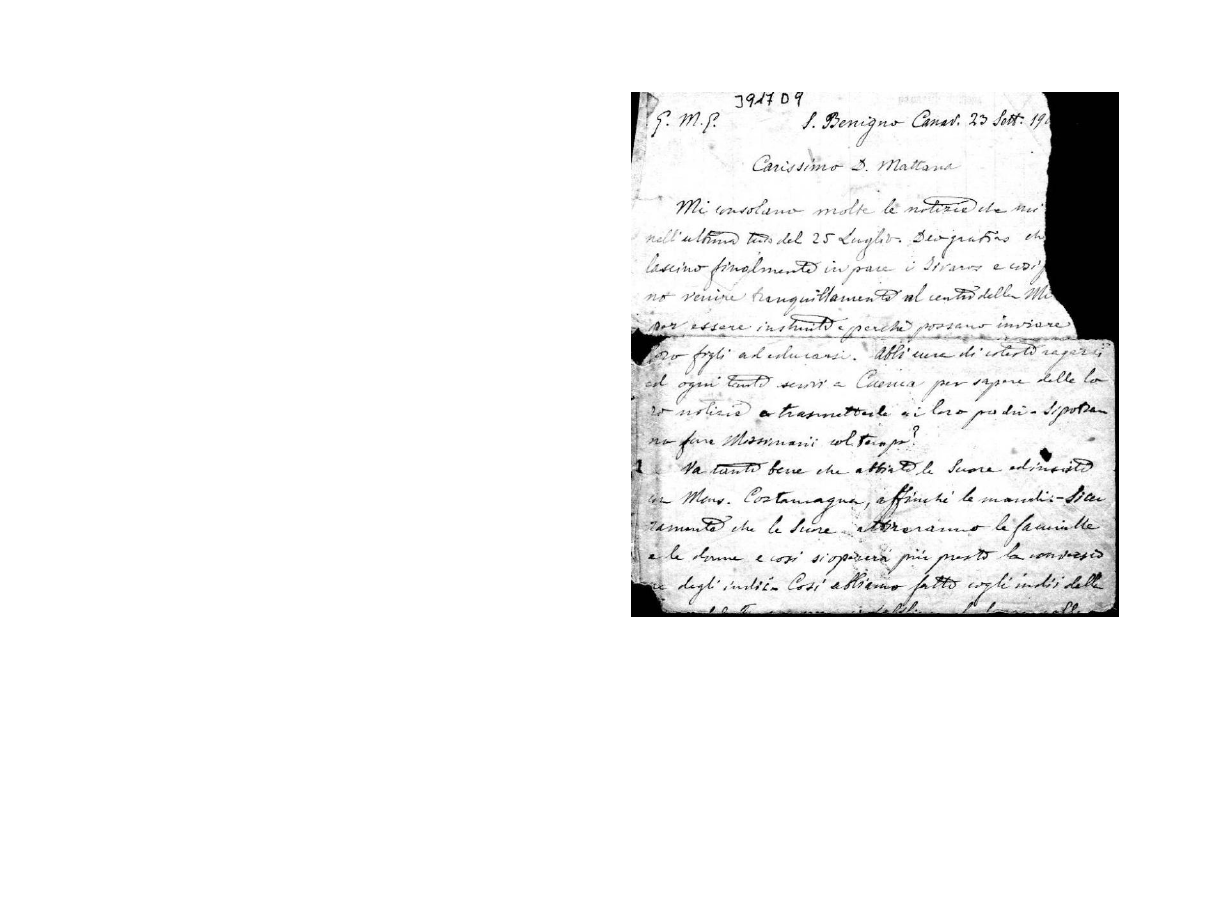 3917 D9
G. M. G. S. Benigno Canav. 23 Sett. 19
Carissimo D. Mattana
Mi consolano molte le notizie che mi
nell'ultima tua del 25 Luglio. Deo gratias ch
lascino finalmente in pace i Jivaros e così p
no venire tranquillamente al centro della Mi
per essere instruiti e perchè possano inviare
loro figli ad educarsi. Abbi cura di cotesti ragazzi
ed ogni tanto scrivi a Cuenca per sapere delle lo
ro notizie e trasmetterle ai loro padri - Si potran
no fare Missionarii col tempo?
Va tanto bene che abbiate le Suore ed insisto
con Mons. Costamagna, affinchè le mandi: - Sicu
ramente che le Suore attireranno le fanciulle
e le donne e così si opererà più presto la conversio
ne degli indii - Così abbiamo fatto cogli indii della